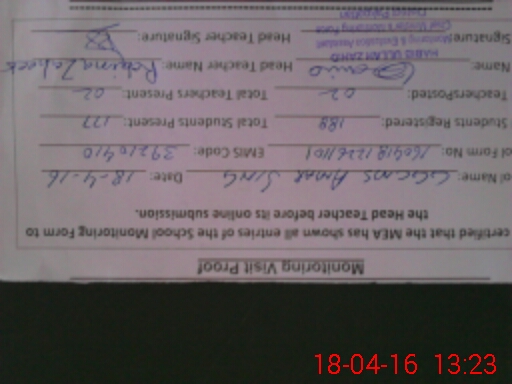 Monitoring Visit Proof
certified that the MEA has shown all entries of the School Monitoring Form to
the Head Teacher before its online submission.
ol Name: GGCMS AMAR SING Date: 18-4-16
ol Form No: EMIS Code: 39210410
Students Registered: 188 Total Students Present: 177
TeachersPosted: 02 Total Teachers Present: 02
Name: Head Teacher Name:
HABIB ULLAH ZAHID
Monitoring & Evaluation Assistant
Signature: Head Teacher Signature:
18-04-16 13:23